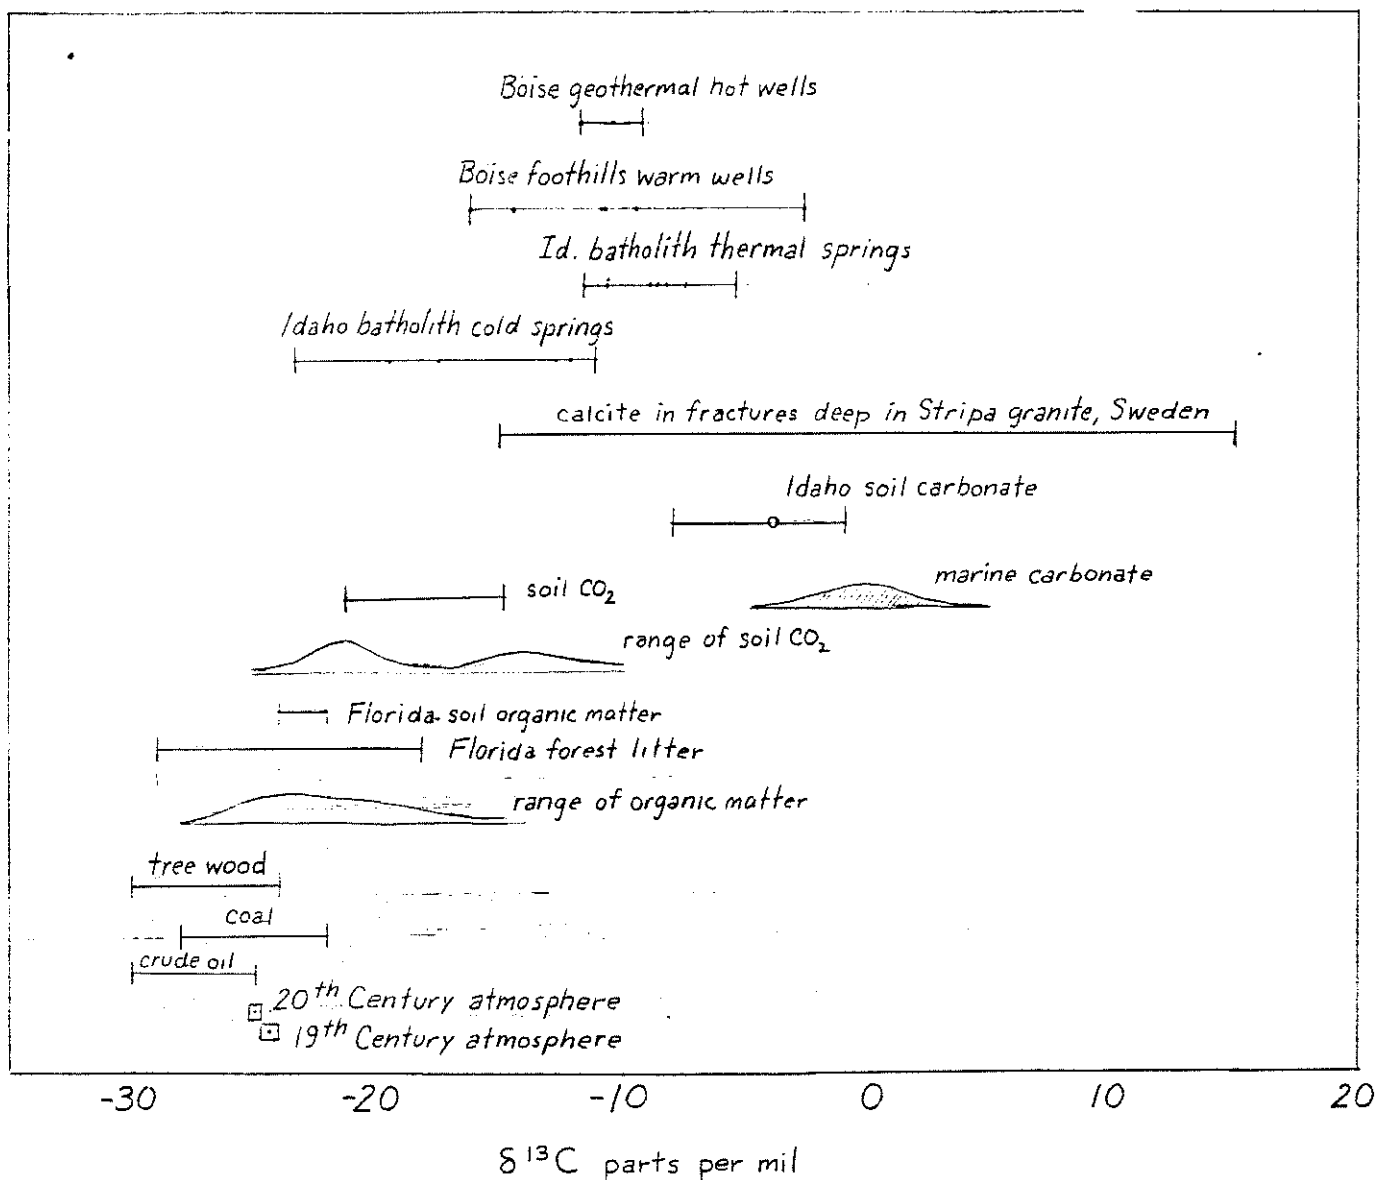 Boise geothermal hot wells
Boise foothills warm wells
Id. batholith thermal springs
Idaho batholith cold springs
calcite in fractures deep in Stripa granite, Sweden
Idaho soil carbonate
marine carbonate
soil CO₂
range of soil CO₂
Florida soil organic matter
Florida forest litter
range of organic matter
tree wood
coal
crude oil
20th Century atmosphere
19th Century atmosphere
-30 -20 -10 0 10 20
δ ¹³C parts per mil